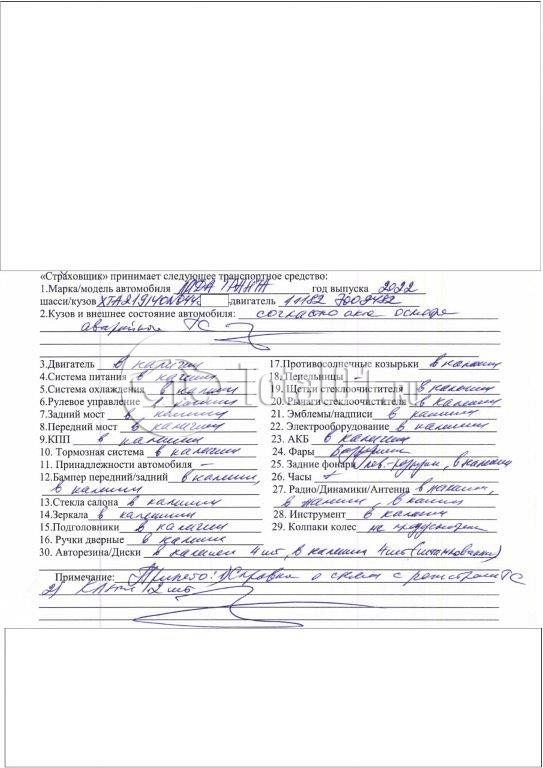 «Страховщик» принимает следующее транспортное средство:
1.Марка/модель автомобиля Лада Гранта год выпуска 2022
шасси/кузов XTA219140N844 двигатель 11182
2.Кузов и внешнее состояние автомобиля: согласно акта осмотра
аварийное ТС
3.Двигатель в наличии
4.Система питания в наличии
5.Система охлаждения в наличии
6.Рулевое управление в наличии
7.Задний мост в наличии
8.Передний мост в наличии
9.КПП в наличии
10. Тормозная система в наличии
11. Принадлежности автомобиля –
12.Бампер передний/задний в наличии,
в наличии
13.Стекла салона в наличии
14.Зеркала в наличии
15.Подголовники в наличии
16. Ручки дверные в наличии
17.Противосолнечные козырьки в наличии
18. Пепельницы –
19. Щетки стеклоочистителя в наличии
20. Рычаги стеклоочистителя в наличии
21. Эмблемы/надписи в наличии
22. Электрооборудование в наличии
23. АКБ в наличии
24. Фары
25. Задние фонари в наличии
26. Часы
27. Радио/Динамики/Антенна в наличии,
в наличии - в наличии
28. Инструмент в наличии
29. Колпаки колес не предусмотрено
30. Авторезина/Диски в наличии 4 шт, в наличии 4 шт (штампованные)
Примечание: Принято: 1) Справка о с регистрации ТС
2) Ключи 2 шт.